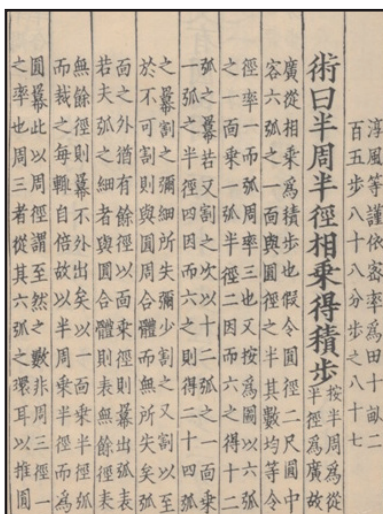 淳風等謹依密率為田十畝二
百五步八十八分步之八十七
術曰半周半徑相乘得積步
按半周為從
半徑為廣故
廣從相乘為積步也假令圓徑二尺圓中
容六弧之一面與圓徑之半其數均等合
徑率一而弧周率三也又按為圖以六弧
之一面乘一弧半徑二因而六之得十二
弧之冪若又割之次以十二弧之一面乘
一弧之半徑四因而六之則得二十四弧
之冪割之彌細所失彌少割之又割以至
於不可割則與圓周合體而無所失矣弧
面之外猶有餘徑以面乘徑則冪出弧表
若夫弧之細者與圓合體則表無餘徑表
無餘徑則冪不外出矣以一面乘半徑弧
而裁之每輒自倍故以半周乘半徑而為
圓冪此以周徑謂至然之數非周三徑一
之率也周三者從其六弧之環耳以推圓